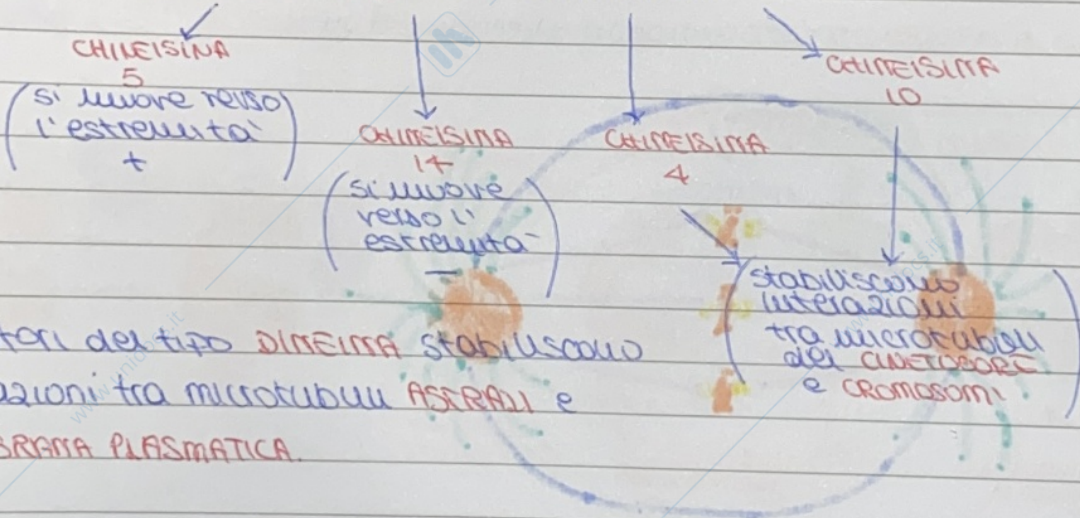 CHINEISINA
5
(si muove verso
l'estremità
+)
CHINEISINA
14
(si muove
verso l'
estremità
−)
CHINEISINA
4
CHINEISINA
10
(stabiliscono
interazioni
tra microtubuli
del CINETOCORE
e CROMOSOMI)
tori del tipo DINEINA stabiliscono
azioni tra microtubuli ASTRALI e
BRANA PLASMATICA.